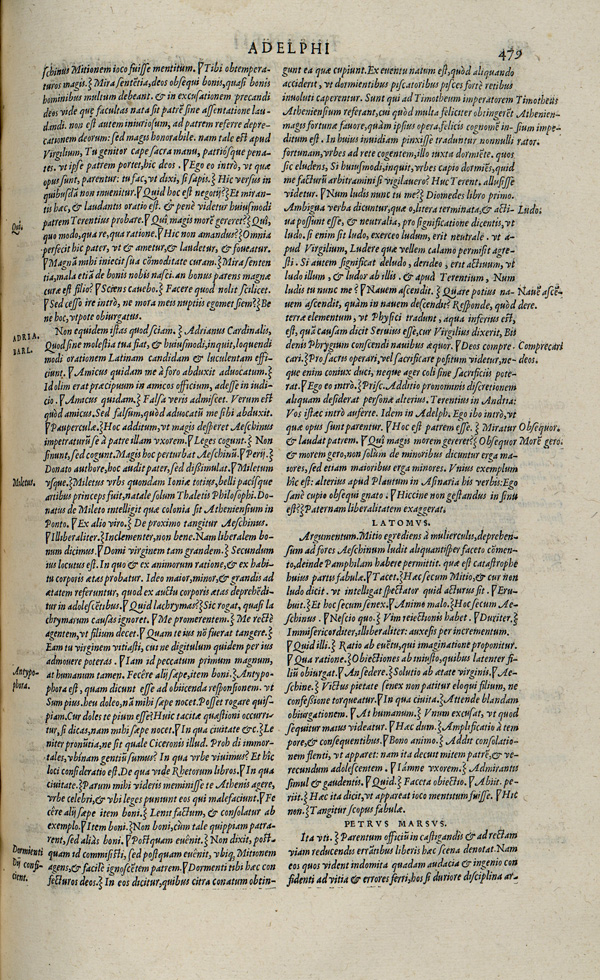 ADELPHI
479
schinus Mitionem ioco fuisse mentitum. ⁋Tibi obtempera-
turos magis.⁊ Mira sentētia, deos obsequi bonis, quasi bonis
hominibus multum debeant. & in excusationem precandi
deos vide que facultas nata sit patrē sine assentatione lau-
dandi. non est autem iniuriosum, ad patrem referre depre-
cationem deorum: sed magis honorabile. nam tale est apud
Virgilium, Tu genitor cape sacra manu, patriósque pena-
tes. vt ipse patrem portet, hic deos. ⁋Ego eo intrò, vt quæ
opus sunt, parentur: tu fac, vt dixi, si sapis.⁊ Hic versus in
quibusdā non inuenitur. ⁋Quid hoc est negotij?⁊ Et miran-
tis hæc, & laudantis oratio est. & penè videtur huiusmodi
patrem Terentius probare. ⁋Quì magis morē gereret?⁊ Quî,
quo modo, qua re, qua ratione. ⁋Hic non amandus?⁊ Omnia
perfecit hic pater, vt & ametur, & laudetur, & foueatur.
⁋Magnā mihi iniecit sua cōmoditate curam.⁊ Mira senten
tia, mala etiā de bonis nobis nasci. an bonus parens magnæ
curæ est filio? ⁋Sciens cauebo.⁊ Facere quod nolit scilicet.
⁋Sed cesso ire intrò, ne mora meis nuptiis egomet siem?⁊ Be
ne hoc, vt pote obiurgatus.
Non equidem istas quod sciam.⁊ Adrianus Cardinalis,
Quod sine molestia tua fiat, & huiusmodi, inquit, loquendi
modi orationem Latinam candidam & luculentam effi-
ciunt. ⁋Amicus quidam me à foro abduxit aduocatum.⁊
Id olim erat præcipuum in amicos officium, adesse in iudi-
cio. ⁋Amicus quidam.⁊ Falsa veris admiscet. Verum est
quòd amicus. Sed falsum, quòd aduocatū me sibi abduxit.
⁋Pauperculæ.⁊ Hoc additum, vt magis desperet Aeschinus
impetraturū se à patre illam vxorem. ⁋Leges cogunt.⁊ Non
sinunt, sed cogunt. Magis hoc perturbat Aeschinū. ⁋Perij.⁊
Donato authore, hoc audit pater, sed dissimulat. ⁋Miletum
vsque.⁊ Miletus vrbs quondam Ioniæ totius, belli pacisque
artibus princeps fuit, natale solum Thaletis Philosophi. Do-
natus de Mileto intelligit quæ colonia sit Atheniensium in
Ponto. ⁋Ex alio viro.⁊ De proximo tangitur Aeschinus.
⁋Illiberaliter.⁊ Inclementer, non bene. Nam liberalem bo-
num dicimus. ⁋Domi virginem tam grandem.⁊ Secundum
ius locutus est. In quo & ex animorum ratione, & ex habi-
tu corporis ætas probatur. Ideo maior, minor, & grandis ad
ætatem referuntur, quod ex auctu corporis ætas deprehēdi-
tur in adolescētibus. ⁋Quid lachrymas?⁊ Sic rogat, quasi la
chrymarum causas ignoret. ⁋Me promerentem.⁊ Me rectè
agentem, vt filium decet. ⁋Quam te ius nō fuerat tangere.⁊
Eam tu virginem vitiasti, cui ne digitulum quidem per ius
admouere poteras. ⁋Iam id peccatum primum magnum,
at humanum tamen. Fecêre alij sæpe, item boni.⁊ Antypo-
phora est, quam dicunt esse ad obiicenda responsionem. vt
Sum pius. heu doleo, nā mihi sæpe nocet. Posset rogare quis-
piam. Cur doles te pium esse? Huic tacitæ quæstioni occurri-
tur, si dicas, nam mihi sæpe nocet. ⁋In qua ciuitate &c.⁊ Le
niter pronūtia, ne sit quale Ciceronis illud. Proh di immor-
tales, vbinam gentiū sumus? In qua vrbe viuimus? Et hîc
loci consideratio est. De qua vide Rhetorum libros. ⁋In qua
ciuitate.⁊ Parum mihi videris meminisse te Athenis agere,
vrbe celebri, & vbi leges puniunt eos qui malefaciunt. ⁋Fe
cêre alij sæpe item boni.⁊ Lenit factum, & consolatur ab
exemplo. ⁋Item boni.⁊ Non boni, cùm tale quippiam patra-
rent, sed aliàs boni. ⁋Postquam euênit.⁊ Non dixit, post-
quam id commisisti, sed postquam euênit, vbique, Mitionem
agens, & facilè ignoscētem patrem. ⁋Dormenti tibi hæc con
fecturos deos.⁊ In eos dicitur, quibus citra conatum obtin-
Quì.
ADRIA.
BARL.
Miletus.
Antypo-
phora.
Dormienti
Dij confi-
cient.
gunt ea quæ cupiunt. Ex euentu natum est, quòd aliquando
accidit, vt dormientibus piscatoribus pisces fortè retibus
inuoluti caperentur. Sunt qui ad Timotheum imperatorem
Atheniensium referant, cui quòd multa feliciter obtingerēt
magis fortuna fauore, quàm ipsius opera, felicis cognomē in-
ditum est. In huius inuidiam pinxisse traduntur nonnulli
fortunam, vrbes ad rete cogentem, illo iuxta dormiēte. quos
sic eludens, Si huiusmodi, inquit, vrbes capio dormiēs, quid
me facturū arbitramini si vigilauero? Huc Terent. allusisse
videtur. ⁋Num ludis nunc tu me?⁊ Diomedes libro primo.
Ambigua verba dicuntur, quæ o, litera terminata, & acti-
ua possunt esse, & neutralia, pro significatione dicentis, vt
ludo. si enim sit ludo, exerceo ludum, erit neutrale. vt a-
pud Virgilium, Ludere quæ vellem calamo permisit agre-
sti. Si autem significat deludo, derideo, erit actiuum, vt
ludo illum, & ludor ab illis. & apud Terentium, Num
ludis tu nunc me? ⁋Nauem ascendit.⁊ Quare potius na-
uem ascendit, quàm in nauem descendit? Responde, quòd
terræ elementum, vt Physici tradunt, aqua inferius est,
est, quā causam dicit Seruius esse, cur Virgilius dixerit, Bis
denis Phrygium conscendi nauibus æquor. ⁋Deos compre-
cari.⁊ Pro sacris operari, vel sacrificare positum videtur, ne-
que enim coniux duci, neque ager coli sine sacrificiis pote-
rat. ⁋Ego eo intrò.⁊ Prisc. Additio pronominis discretionem
aliquam desiderat personæ alterius. Terentius in Andria:
Vos istæc intrò auferte. Idem in Adelph. Ego ibo intrò, vt
quæ opus sunt parentur. ⁋Hoc est patrem esse.⁊ Miratur
& laudat patrem. ⁋Quî magis morem gereret?⁊ Obsequor
& morem gero, non solùm de minoribus dicuntur erga ma-
iores, sed etiam maioribus erga minores. Vnius exemplum
hîc est: alterius apud Plautum in Asinaria his verbis: Ego
sanè cupio obsequi gnato. ⁋Hiccine non gestandus in sinu
est?⁊ Paternam liberalitatem exaggerat.
LATOMVS.
Argumentum. Mitio egrediens à mulierculis, deprehen-
sum ad fores Aeschinum ludit aliquantisper faceto cōmen-
to, deinde Pamphilam habere permittit. quæ est catastrophe
huius partis fabulæ. ⁋Tacet.⁊ Hæc secum Mitio, & cur non
ludo dicit. vt intelligat spectator quid acturus sit. ⁋Eru-
buit.⁊ Et hoc secum senex. ⁋Animo malo.⁊ Hoc secum Ae-
schinus. ⁋Nescio quo.⁊ Vim reiectionis habet. ⁋Duriter.⁊
Immisericorditer, illiberaliter: auxesis per incrementum.
⁋Quid illi.⁊ Ratio ab euētu, qui imaginatione proponitur.
⁋Qua ratione.⁊ Obiectiones ab iniusto, quibus latenter fi-
liū obiurgat. ⁋An sedere.⁊ Solutio ab ætate virginis. ⁋Ae-
schine.⁊ Victus pietate senex non patitur eloqui filium, ne
confessione torqueatur. ⁋In qua ciuita.⁊ Attende blandam
obiurgationem. ⁋At humanum.⁊ Vnum excusat, vt quod
sequitur maius videatur. ⁋Hæc dum.⁊ Amplificatio à tem
pore, & consequentibus. ⁋Bono animo.⁊ Addit consolatio-
nem flenti, vt apparet: nam ita decuit mitem patrē, & ve-
recundum adolescentem. ⁋Iámne vxorem.⁊ Admirantis
simul & gaudentis. ⁋Quid.⁊ Faceta obiectio. ⁋Abiit. pe-
riit.⁊ Hæc ita dicit, vt appareat ioco mentitum fuisse. ⁋Hic
non.⁊ Tangitur scopus fabulæ.
PETRVS MARSVS.
Ita vti.⁊ Parentum officiū in castigandis & ad rectam
viam reducendis errātibus liberis hæc scena denotat. Nam
eos quos vident indomita quadam audacia & ingenio con
fidenti ad vitia & errores ferri, hos si duriore disciplina ar-
Timotheus
Athenien-
sium impe-
rator.
Ludo.
Nauē ascē-
dere.
Comprecari
deos.
Obsequor.
Morē gero.